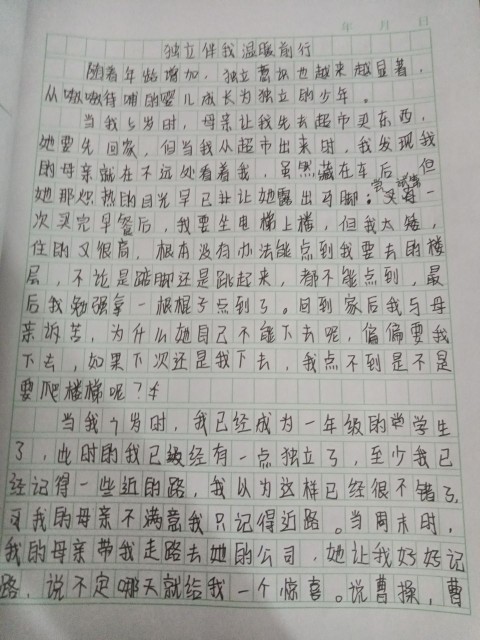 年 月 日
独立伴我温暖前行
随着年龄增加，独立意识也越来越显著，
从嗷嗷待哺的婴儿成长为独立的少年。
当我5岁时，母亲让我先去超市买东西，
她要先回家，但当我从超市出来时，我发现我
的母亲就在不远处看着我，虽然藏在车后，但
她那炽热的目光早已让她露出马脚；又有一
次买完早餐后，我要坐电梯上楼，但我太矮，
住的又很高，根本没有办法能点到我要去的楼
层，不论是踮脚还是跳起来，都不能点到，最
后我勉强拿一根棍子点到了。回到家后我与母
亲诉苦，为什么她自己不能下去呢，偏偏要我
下去，如果下次还是我下去，我点不到是不是
要爬楼梯呢？
当我7岁时，我已经成为一年级的学生
了，此时的我已经有一点独立了，至少我已
经记得一些近的路，我以为这样已经很不错了，
可我的母亲不满意我只记得近路。当周末时，
我的母亲带我走路去她的公司，她让我好好记
路，说不定哪天就给我一个惊喜。说曹操，曹